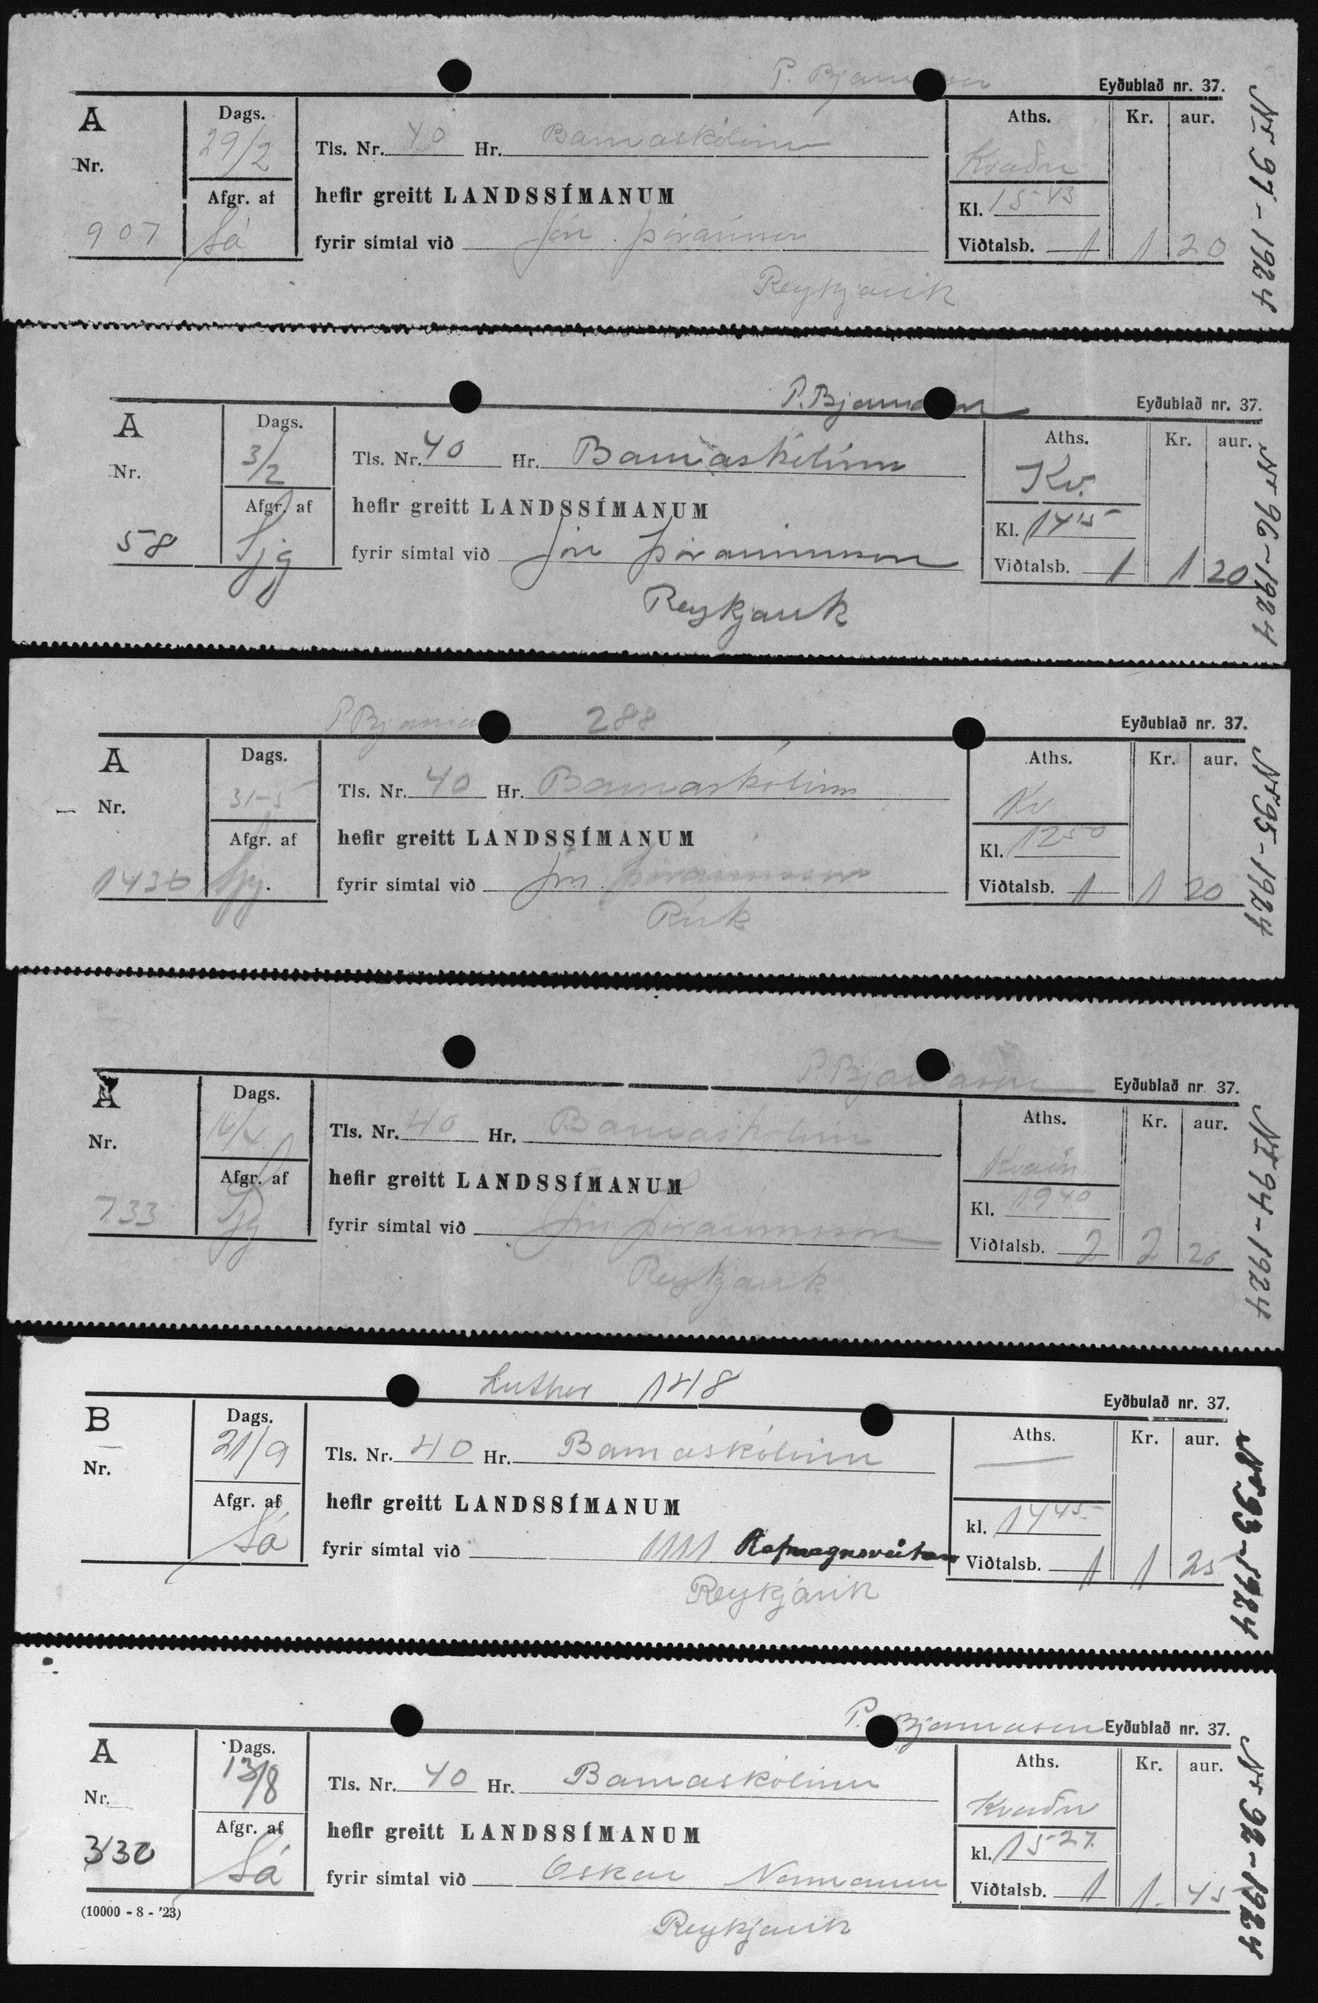 P. Bjarnason
Eyðublað nr. 37.
A Dags. 29/2 Tls. Nr. 40 Hr. Barnaskólinn Aths. Kvaðn Kr. aur.
Nr. 907 Afgr. af Sá hefir greitt LANDSSÍMANUM Kl. 15-43
fyrir símtal við Jón Þórarinsson Viðtalsb. 1 1 20
Reykjavík
Nr 97-1924
P. Bjarnason
Eyðublað nr. 37.
A Dags. 3/2 Tls. Nr. 40 Hr. Barnaskólinn Aths. Kv. Kr. aur.
Nr. 58 Afgr. af Sjg hefir greitt LANDSSÍMANUM Kl. 1415
fyrir símtal við Jón Þórarinnsson Viðtalsb. 1 1 20
Reykjavík
Nr 96-1924
P Bjarna 288
Eyðublað nr. 37.
A Dags. 31-5 Tls. Nr. 40 Hr. Barnaskólinn Aths. Kv Kr. aur.
Nr. 1430 Afgr. af Sjg. hefir greitt LANDSSÍMANUM Kl. 1250
fyrir símtal við Jón Þórarinsson Viðtalsb. 1 1 20
Rvík
Nr 95-1924
P. Bjarnason
Eyðublað nr. 37.
A Dags. 16/4 Tls. Nr. 40 Hr. Barnaskólinn Aths. Kvaðn Kr. aur.
Nr. 733 Afgr. af Sjg hefir greitt LANDSSÍMANUM Kl. 1940
fyrir símtal við Jón Þórarinnsson Viðtalsb. 2 2 20
Reykjavík
Nr 94-1924
Luther 148
Eyðbulað nr. 37.
B Dags. 21/9 Tls. Nr. 40 Hr. Barnaskólinn Aths. — Kr. aur.
Nr. Afgr. af Sá hefir greitt LANDSSÍMANUM kl. 1445
fyrir símtal við Rafmagnsveitan Viðtalsb. 1 1 25
Reykjavík
Nr 93-1924
P. Bjarnason
Eyðublað nr. 37.
A Dags. 13/8 Tls. Nr. 40 Hr. Barnaskólinn Aths. Kvaðn Kr. aur.
Nr. 330 Afgr. af Sá hefir greitt LANDSSÍMANUM kl. 1527
fyrir símtal við Oskar Normann Viðtalsb. 1 1. 45
(10000 - 8 - '23)
Reykjavík
Nr 92-1924